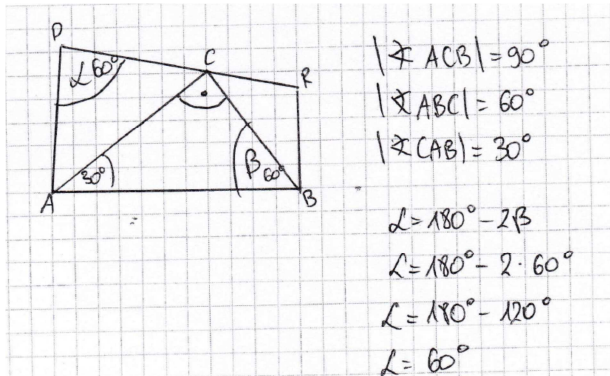 D
C
R
α 60°
30°
β 60°
A
B
|∢ ACB| = 90°
|∢ ABC| = 60°
|∢ CAB| = 30°
α = 180° - 2β
α = 180° - 2 · 60°
α = 180° - 120°
α = 60°